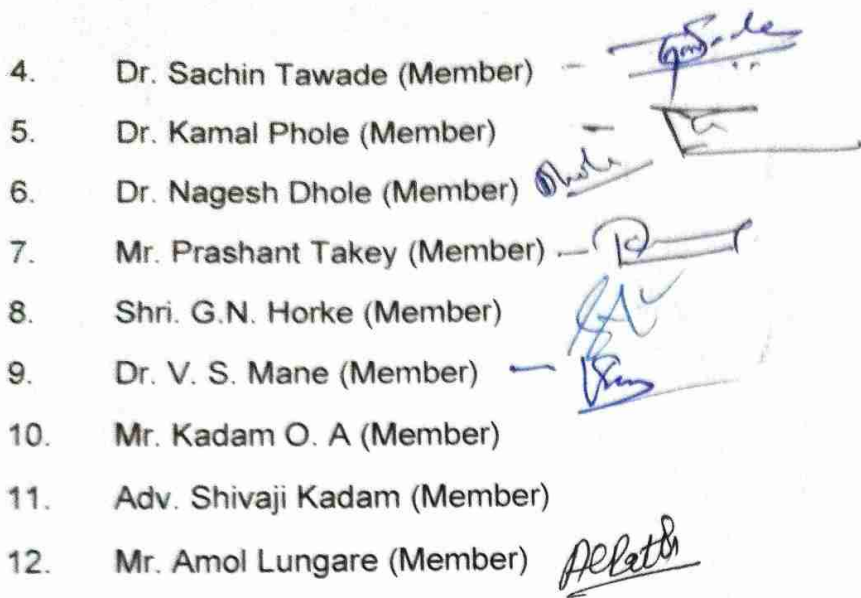 4. Dr. Sachin Tawade (Member) -
5. Dr. Kamal Phole (Member) -
6. Dr. Nagesh Dhole (Member) Dhole
7. Mr. Prashant Takey (Member) -
8. Shri. G.N. Horke (Member)
9. Dr. V. S. Mane (Member) -
10. Mr. Kadam O. A (Member)
11. Adv. Shivaji Kadam (Member)
12. Mr. Amol Lungare (Member)